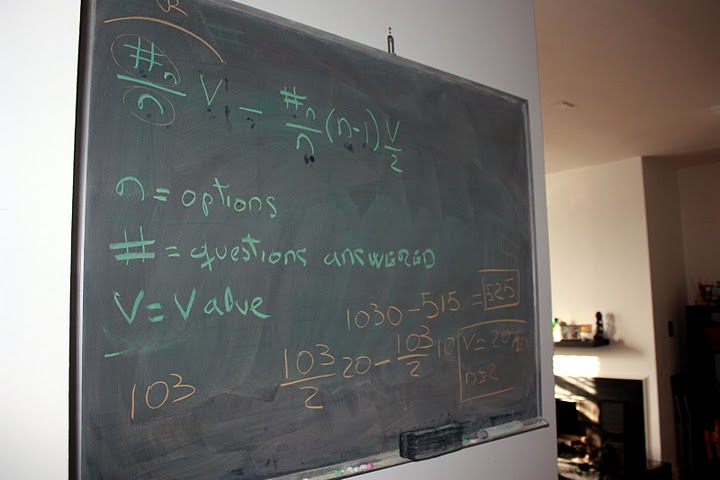 #n/n V - #n/n (n-1) V/2
n = options
# = questions answered
V = Value
1030 - 515 = 525
103/2 20 - 103/2 10
V = 20
n = 2
103